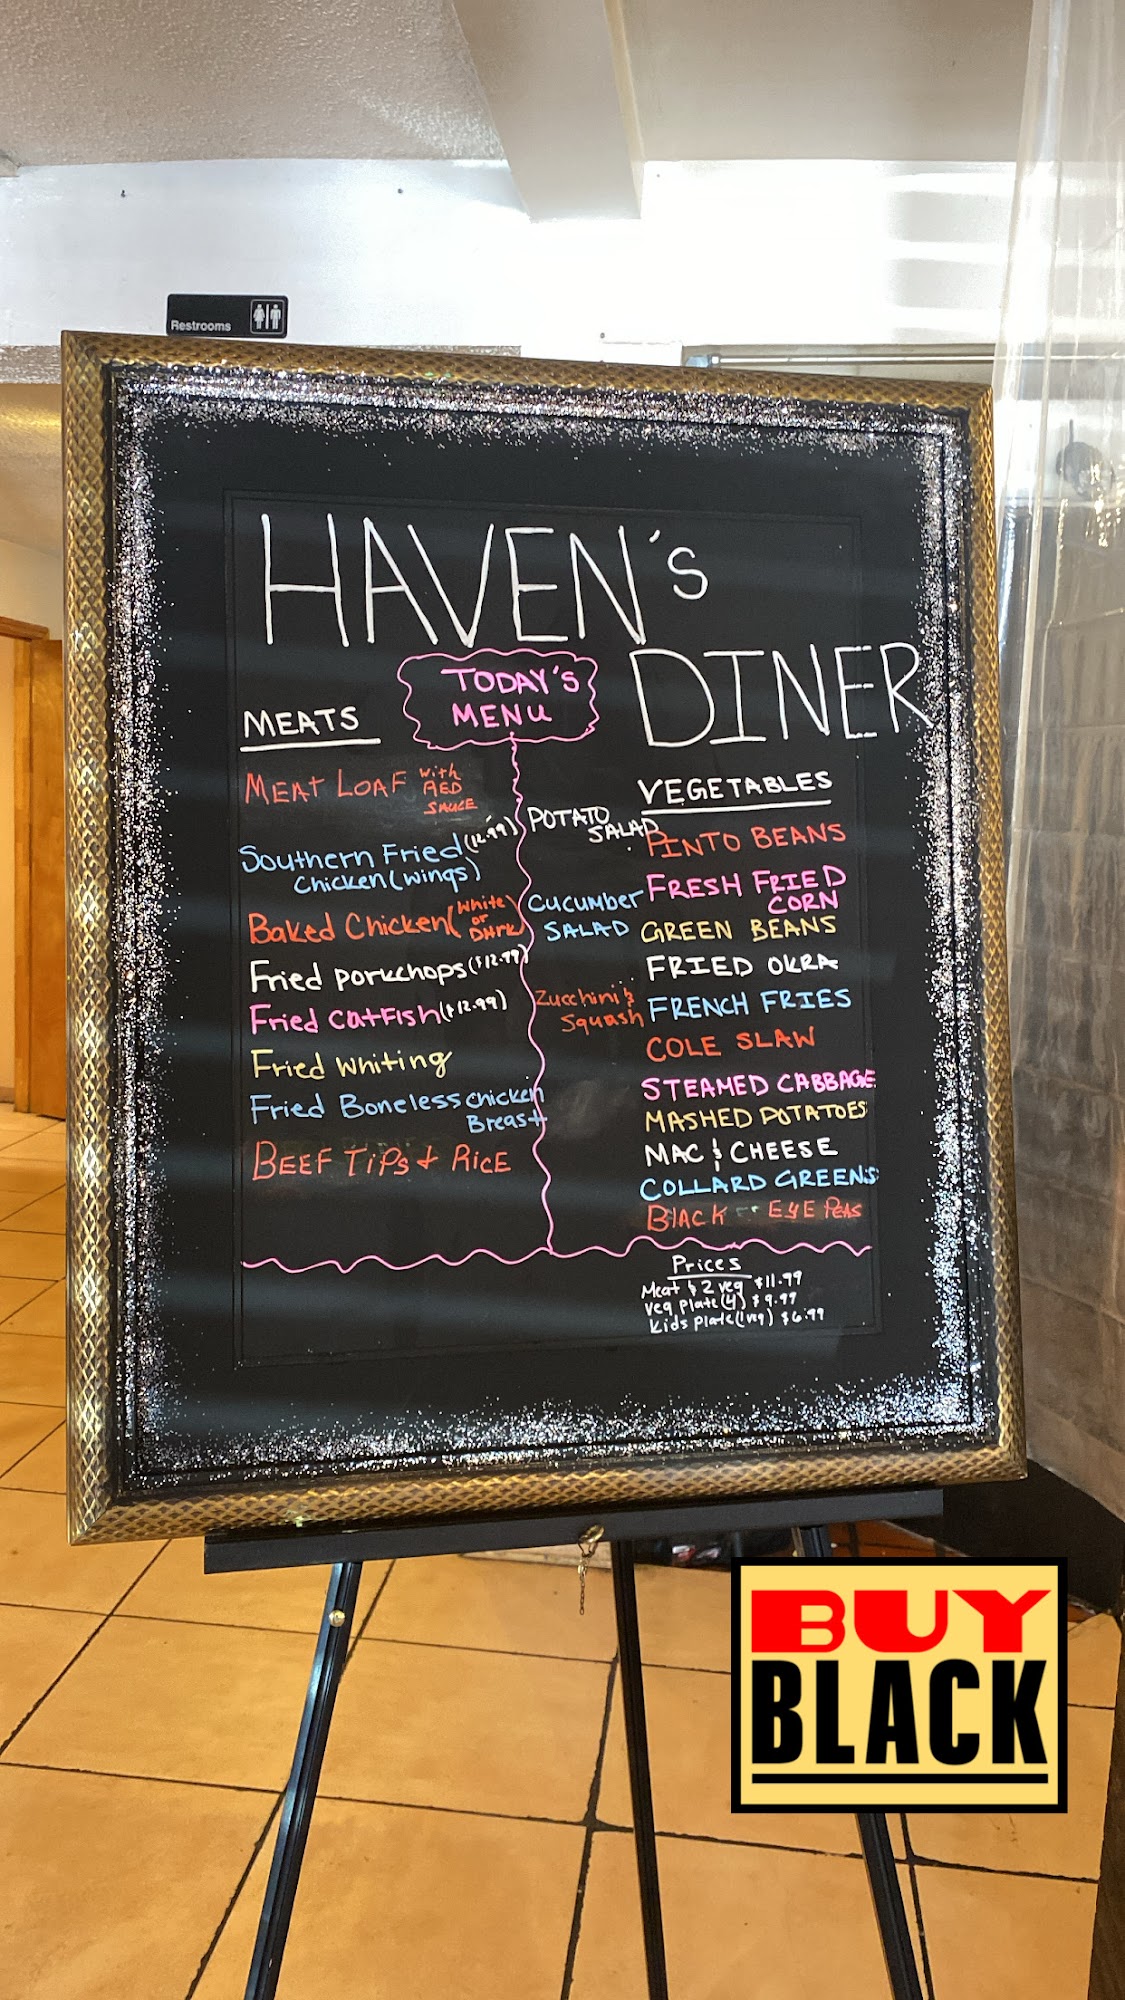 Restrooms
HAVEN's
DINER
TODAY'S
MENU
MEATS
MEAT LOAF with
RED
SAUCE
Southern Fried (12.99)
Chicken (wings)
Baked Chicken (White
or
DArk)
Fried porkchops ($12.99)
Fried catfish ($12.99)
Fried Whiting
Fried Boneless chicken
Breast
BEEF TiPs + RicE
POTATO
SALAD
CUCUMBER
SALAD
Zucchini &
Squash
VEGETABLES
PINTO BEANS
FRESH FRIED
CORN
GREEN BEANS
FRIED OKRA
FRENCH FRIES
COLE SLAW
STEAMED CABBAGE
MASHED POTATOES
MAC & CHEESE
COLLARD GREENS
BlACK - EYE PEAS
Prices
Meat & 2 veg $11.99
veg plate (4) $9.99
Kids plate (1 veg) $6.99
BUY
BLACK